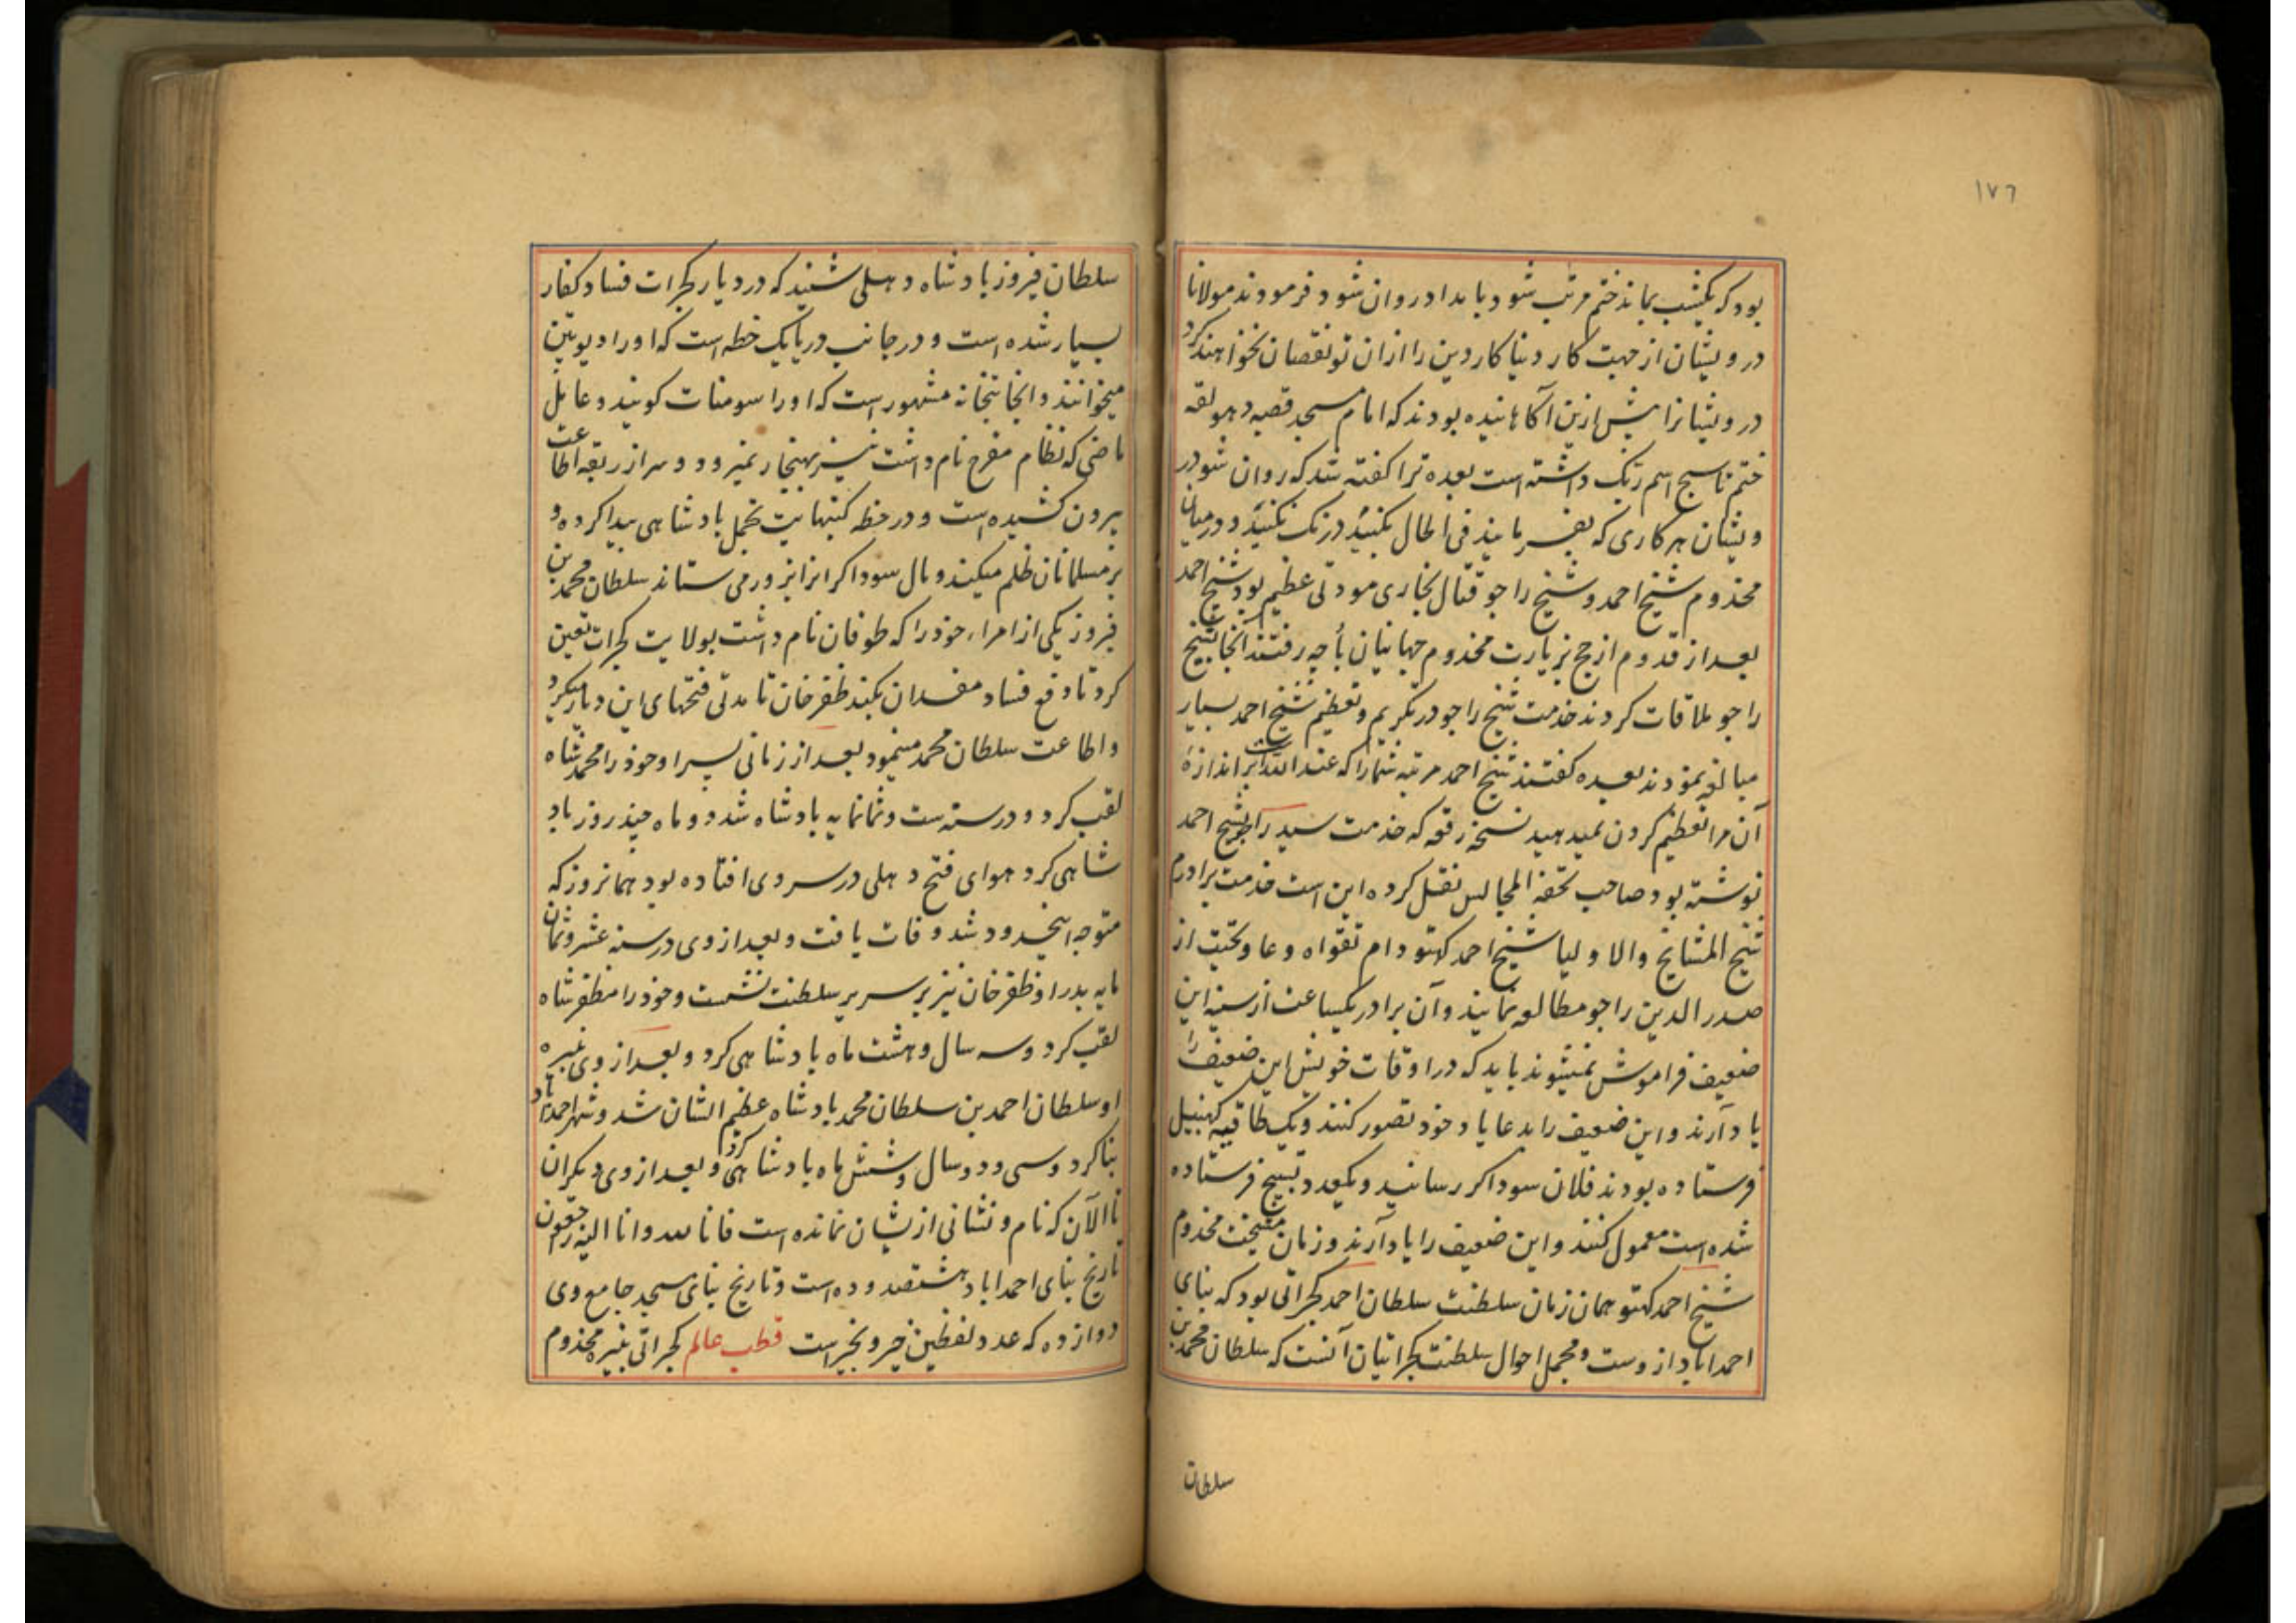 ١٧٦
بود که یکشب بماند ختم مرتب شود و بامداد روان شود فرمودند مولانا
درویشان از جهت کار دنیا کار دین را از ان تو نقصان نخواهند کرد
درویشانرا پیش ازین آکاهانیده بودند که امام مسجد قصبه دهولقه
ختم تا سبح اسم ربک داشته است بعده ترا کفته شد که روان شو در
ویشان هر کاری که بفرمایند فی الحال بکنید درنک نکنید و درمیان
مخدوم شیخ احمد و شیخ راجو قتال بخاری مودتی عظیم بود شیخ احمد
بعد از قدوم از حج بزیارت مخدوم جهانیان باچه رفتند آنجا بشیخ
راجو ملاقات کردند خدمت شیخ راجو در تکریم و تعظیم شیخ احمد بسیار
مبالغه نمودند بعده کفتند شیخ احمد مرتبه شما را که عند الله است بر اندازهٔ
آن مرا تعظیم کردن نمیدهید نسخه رقعه که خدمت سید راجو بشیخ احمد
نوشته بود صاحب تحفة المجالس نقل کرده این است خدمت برادرم
شیخ المشایخ والاولیا شیخ احمد کهتو دام تقواه دعا و تحیت از
صدر الدین راجو مطالعه نمایند و آن برادر یکساعت از سینه این
ضعیف فراموش نمیشوند باید که در اوقات خویش این ضعیف را
یاد آرند و این ضعیف را بدعا یاد خود تصور کنند و یک طاقیه کهنبیل
فرستاده بودند فلان سوداکر رسانید و یکعدد تسبیح فرستاده
شده است معمول کنند و این ضعیف را یاد آرند و زمان مشیخت مخدوم
شیخ احمد کهتو همان زمان سلطنت سلطان احمد کجراتی بود که بنای
احمداباد از وست و مجمل احوال سلطنت کجراتیان آنست که سلطان محمد بن
سلطان
سلطان فیروز بادشاه دهلی شنید که در دیار کجرات فساد کفار
بسیار شده است و در جانب دریا یک خطه است که او را دیوپتن
میخوانند و انجا بتخانه مشهور است که او را سومنات کویند و عامل
ماضی که نظام مفرح نام داشت نیز بهنجار نمیرود و سر از ربقه اطاعت
بیرون کشیده است و در خطه کنبهایت تجمل بادشاهی پیدا کرده و
بر مسلمانان ظلم میکند و مال سوداکرانرا بزور می ستاند سلطان محمد بن
فیروز یکی از امراء خود را که طوفان نام داشت بولایت کجرات تعین
کرد تا دفع فساد مفسدان بکند ظفر خان تا مدتی فتحهای این دیار میکرد و
و اطاعت سلطان محمد مینمود بعد از زمانی پسر او خود را محمد شاه
لقب کرد و در سنه ست و ثمانمایه بادشاه شد دو ماه چند روز باد
شاهی کرد هوای فتح دهلی در سر وی افتاده بود همانروز که
متوجه اینحدود شد وفات یافت و بعد از وی در سنه عشر و ثمان
مایه پدر او ظفر خان نیز بر سریر سلطنت نشست و خود را مظفر شاه
لقب کرد و سه سال و هشت ماه بادشاهی کرد و بعد از وی نبیره
او سلطان احمد بن سلطان محمد بادشاه عظیم الشان شد و شهر احمداباد
بنا کرد و سی و دو سال و شش ماه بادشاهی کرد و بعد از وی دیکران
تا الآن که نام و نشانی از یشان نمانده است فانا لله و انا الیه راجعون
تاریخ بنای احمداباد هشتصد و ده است و تاریخ بنای مسجد جامع وی
دوازده که عدد لفظین خیر و بخیر است قطب عالم کجراتی نبیره مخدوم